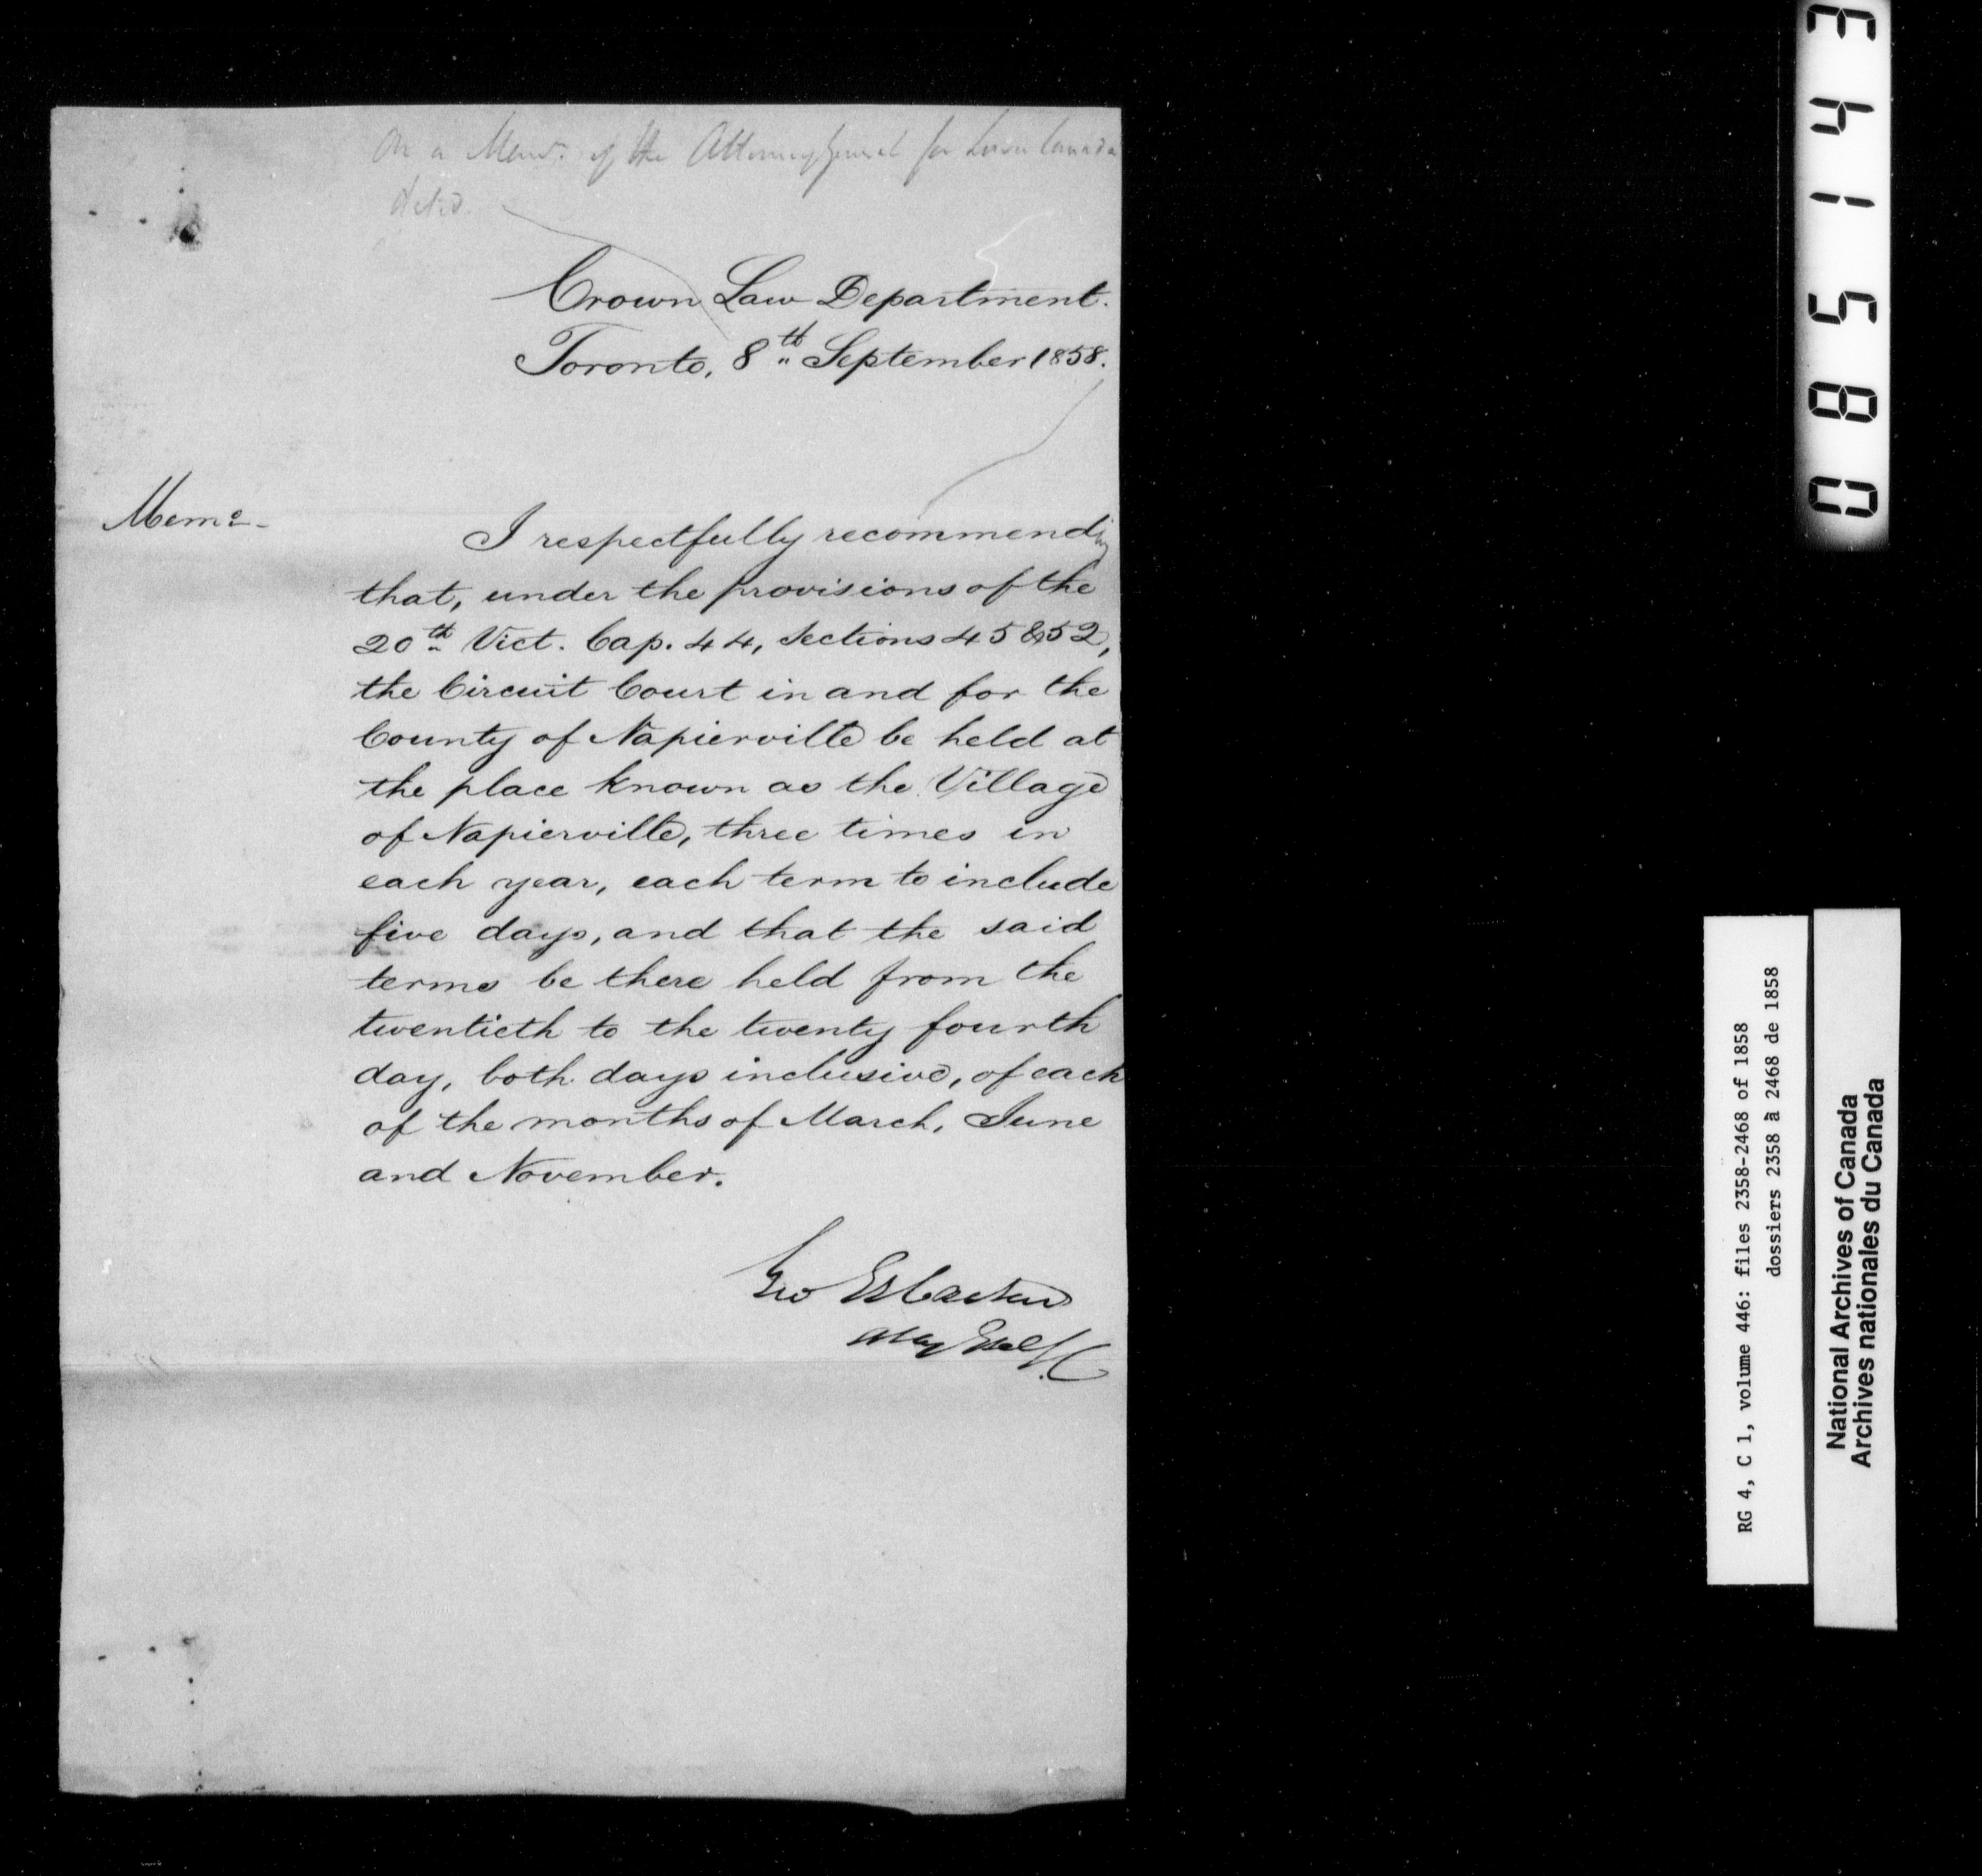 On a Memo. of the Attorney General for Lower Canada
dated
Crown Law Department.
Toronto, 8th September 1858.
Memo-
I respectfully recommending
that, under the provisions of the
20th Vict. Cap. 44, Sections 45 & 52,
the Circuit Court in and for the
County of Napierville be held at
the place known as the Village
of Napierville, three times in
each year, each term to include
five days, and that the said
terms be there held from the
twentieth to the twenty fourth
day, both days inclusive, of each
of the months of March, June
and November.
Geo Et Cartier
Atty Genl L.C
085143
RG 4, C 1, volume 446: files 2358-2468 of 1858
dossiers 2358 à 2468 de 1858
National Archives of Canada
Archives nationales du Canada